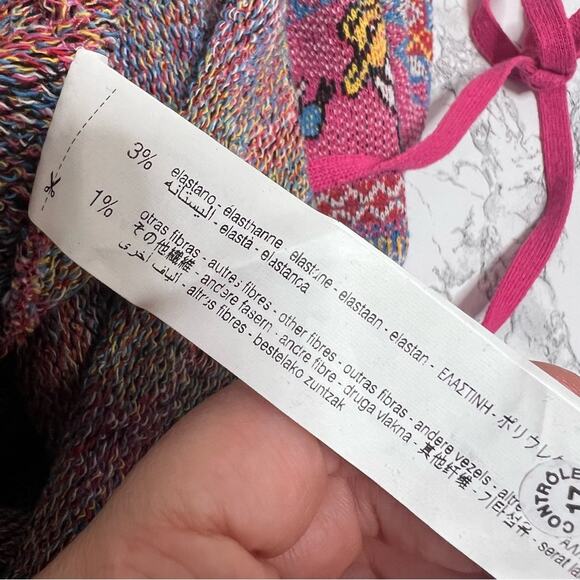 3% elastano - élasthanne - elastane - elastaan - elastan - ΕΛΑΣΤΙΝΗ - ポリウレ
اليستانه - elasta - elastanca
1% otras fibras - autres fibres - other fibres - outras fibras - andere vezels - altre
その他繊維 - andere fasern - ancre fibre - druga vlakna - 其他纤维 - 기타섬유 - serat la
الياف أخرى - altres fibres - bestelako zuntzak
CONTROLE
17